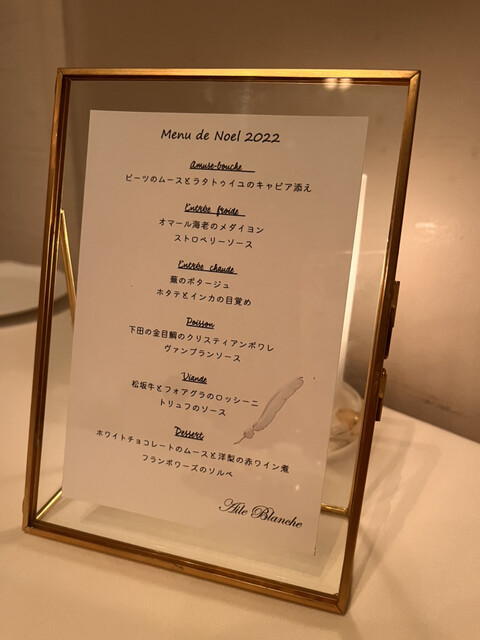 Menu de Noel 2022
Amuse-bouche
ビーツのムースとラタトゥイユのキャビア添え
Entrée froide
オマール海老のメダイヨン
ストロベリーソース
Entrée chaude
蕪のポタージュ
ホタテとインカの目覚め
Poisson
下田の金目鯛のクリスティアンポワレ
ヴァンブランソース
Viande
松坂牛とフォアグラのロッシーニ
トリュフのソース
Dessert
ホワイトチョコレートのムースと洋梨の赤ワイン煮
フランボワーズのソルベ
Aile Blanche